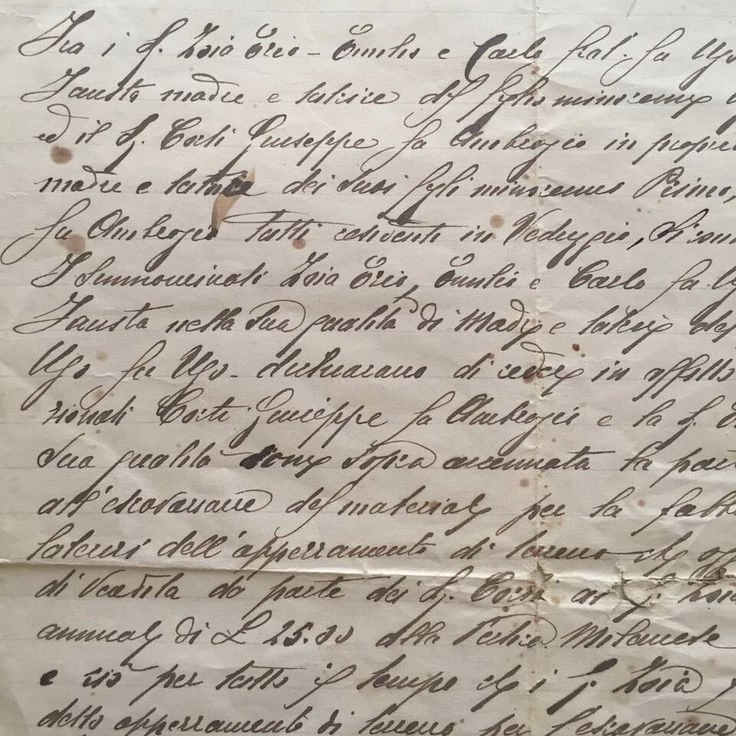 Fra i S. Zoia Ezio - Emilio e Carlo frat. fu Ugo
Fausta madre e tutrice del figlio minorenne
ed il S. Corti Giuseppe fu Ambrogio in proprio
madre e tutrice dei suoi figli minorenni Primo,
fu Ambrogio tutti residenti in Veduggio, si con
I summominati Zoia Ezio, Emilio e Carlo fu
Fausta nella sua qualità di Madre e tutrice del
Ugo fu Ugo - dichiarano di cedere in affitto
zionati Corti Giuseppe fu Ambrogio e la S.
sua qualità come sopra accennata la parte
all'escavazione del materiale per la fabb
laterizi dell'appezzamento di terreno che
di vendita da parte dei S. Corti ai S. Zoia
annuale di £ 25.00 alla Pertica Milanese
e ciò per tutto il tempo che i S. Zoia
detto appezzamento di terreno per l'escavazione